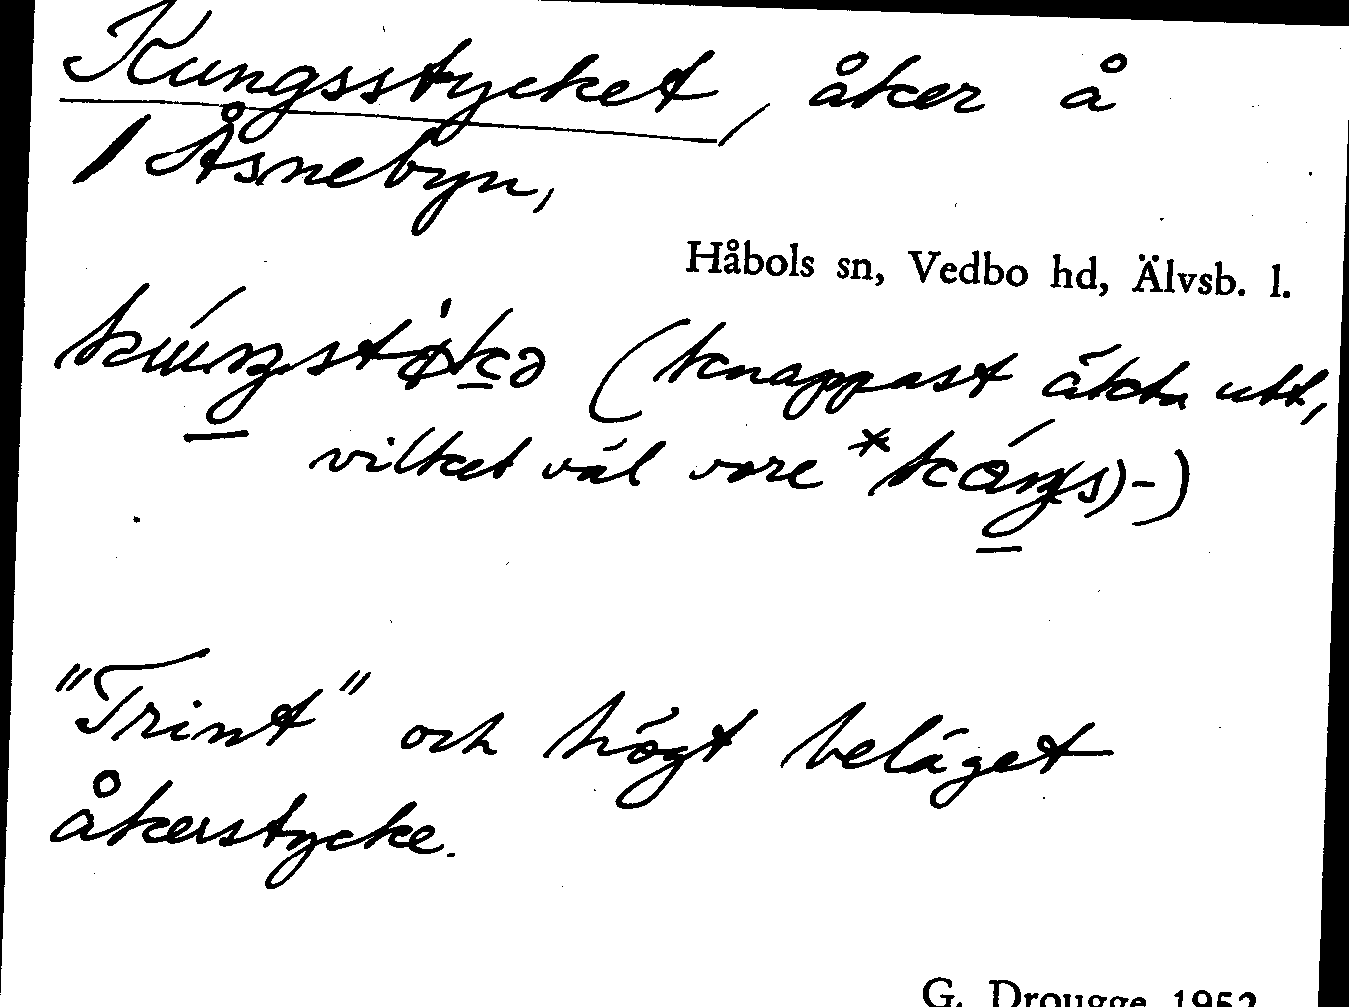 Kungsstycket, åker å
1 Åsnebyn,
Håbols sn, Vedbo hd, Älvsb. l.
(knappast äkta utt,
vilket väl vore
"Trint" och högt beläget
åkerstycke.
G. Drougge 1952